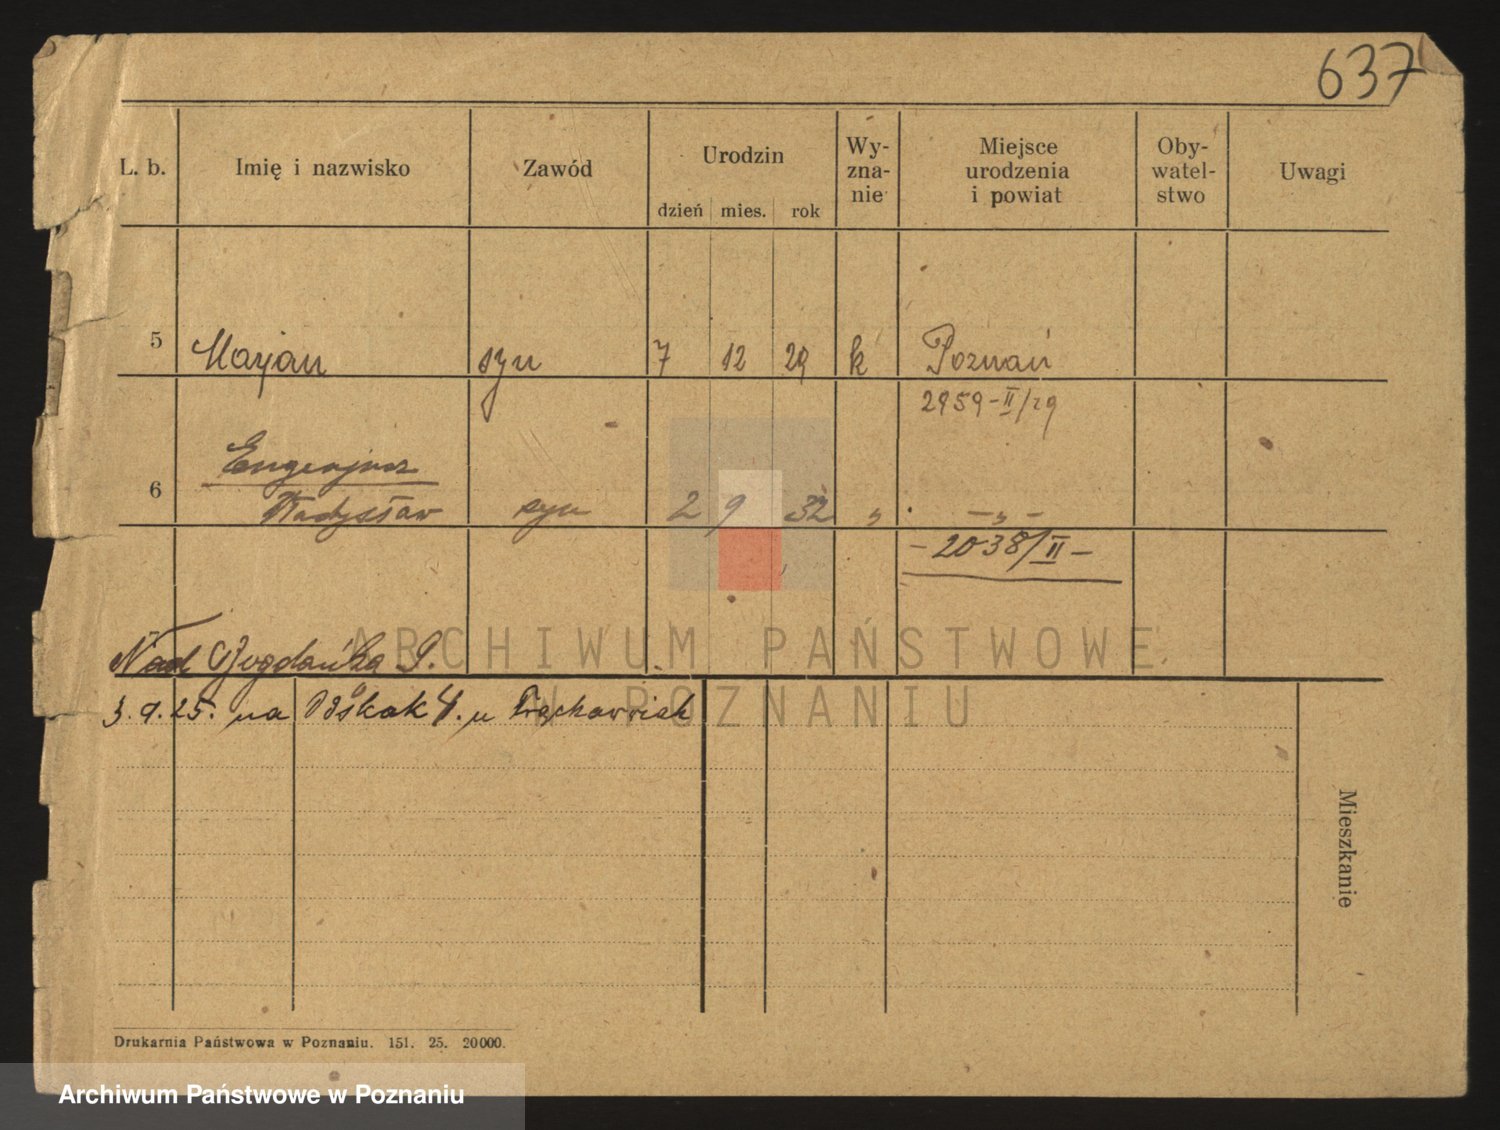 637
L. b. Imię i nazwisko Zawód Urodzin Wy-zna-nie Miejsce urodzenia i powiat Oby-watel-stwo Uwagi
dzień mies. rok
5 Marjan syn 7 12 29 k Poznań
2959-II/29
Eugenjusz
6 Władysław syn 2 9 32 „ – „ –
– 2038/II –
Nad Bogdanką 9.
3.9.25. na Wskok 4. u
Mieszkanie
ARCHIWUM PAŃSTWOWE
W POZNANIU
Drukarnia Państwowa w Poznaniu. 151. 25. 20000.
Archiwum Państwowe w Poznaniu